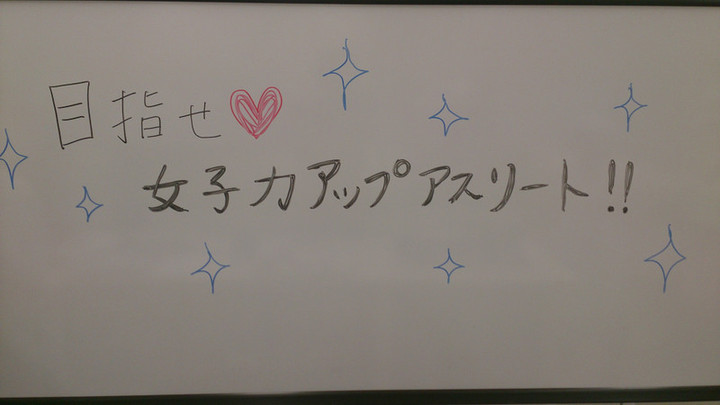 目指せ♥
女子力アップアスリート!!